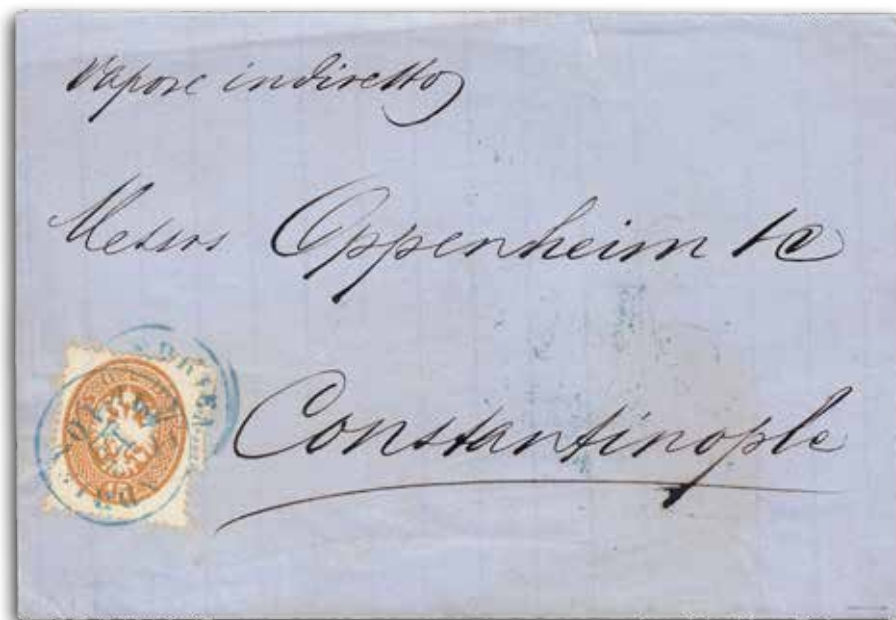 Vapore indiretto
Messrs Oppenheim &C
Constantinople